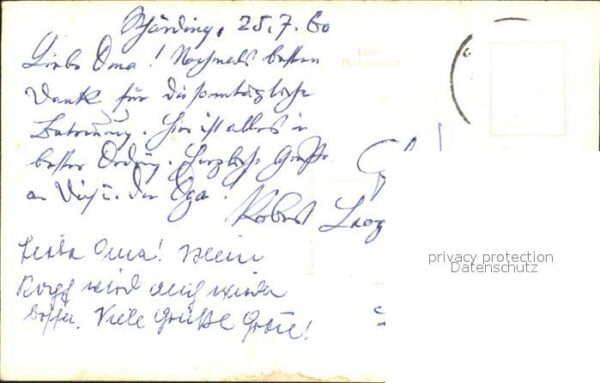 Schärding, 25.7.60
Liebe Oma! Nochmals besten
Dank für die sonntägliche
Betreuung. Hier ist alles in
bester Ordnung. Herzliche Grüße
an Dich u. der Opa.
Robert
Liebe Oma! Mein
Kopf wird auch wieder
besser. Viele Grüße
privacy protection
Datenschutz